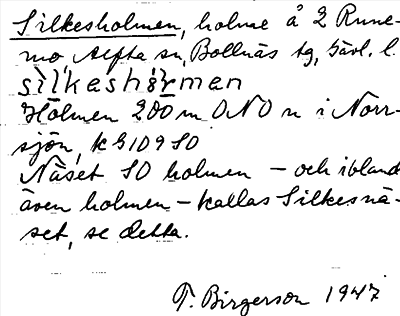 Silkesholmen, holme å 2 Rune-
mo Alfta sn, Bollnäs tg, Gävl. l.
silkeshɷrmen
Holmen 200 m ONO n i Norr-
sjön, k G109 SO
Näset SO holmen – och ibland
även holmen – kallas Silkesnä-
set, se detta.
T. Birgerson 1947